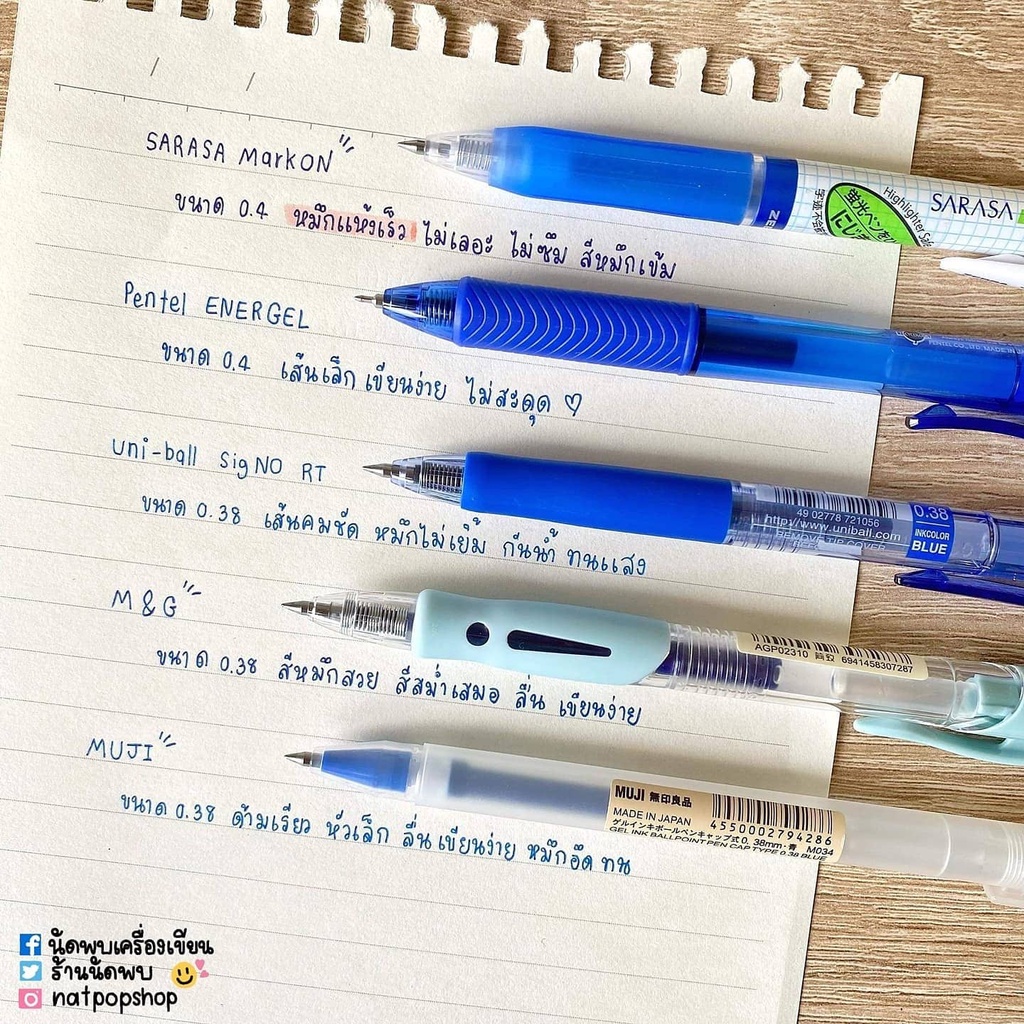 SARASA MarkON
ขนาด 0.4 หมึกแห้งเร็ว ไม่เลอะ ไม่ซึม สีหมึกเข้ม
SARASA
Highlighter
Pentel ENERGEL
ขนาด 0.4 เส้นเล็ก เขียนง่าย ไม่สะดุด ♡
uni-ball SigNO RT
ขนาด 0.38 เส้นคมชัด หมึกไม่เยิ้ม กันน้ำ ทนแสง
49 02778 721056
http://www.uniball.com
REMOVE UP COVER
0.38
INKCOLOR
BLUE
M&G
ขนาด 0.38 สีหมึกสวย สีสม่ำเสมอ ลื่น เขียนง่าย
AGP02310 6941458307287
MUJI
ขนาด 0.38 ด้ามเรียว หัวเล็ก ลื่น เขียนง่าย หมึกอึด ทน
MUJI 無印良品
MADE IN JAPAN
4550002794286
ゲルインキボールペンキャップ式 0.38mm・青 M034
GEL INK BALLPOINT PEN CAP TYPE 0.38 BLUE
นัดพบเครื่องเขียน
ร้านนัดพบ
natpopshop